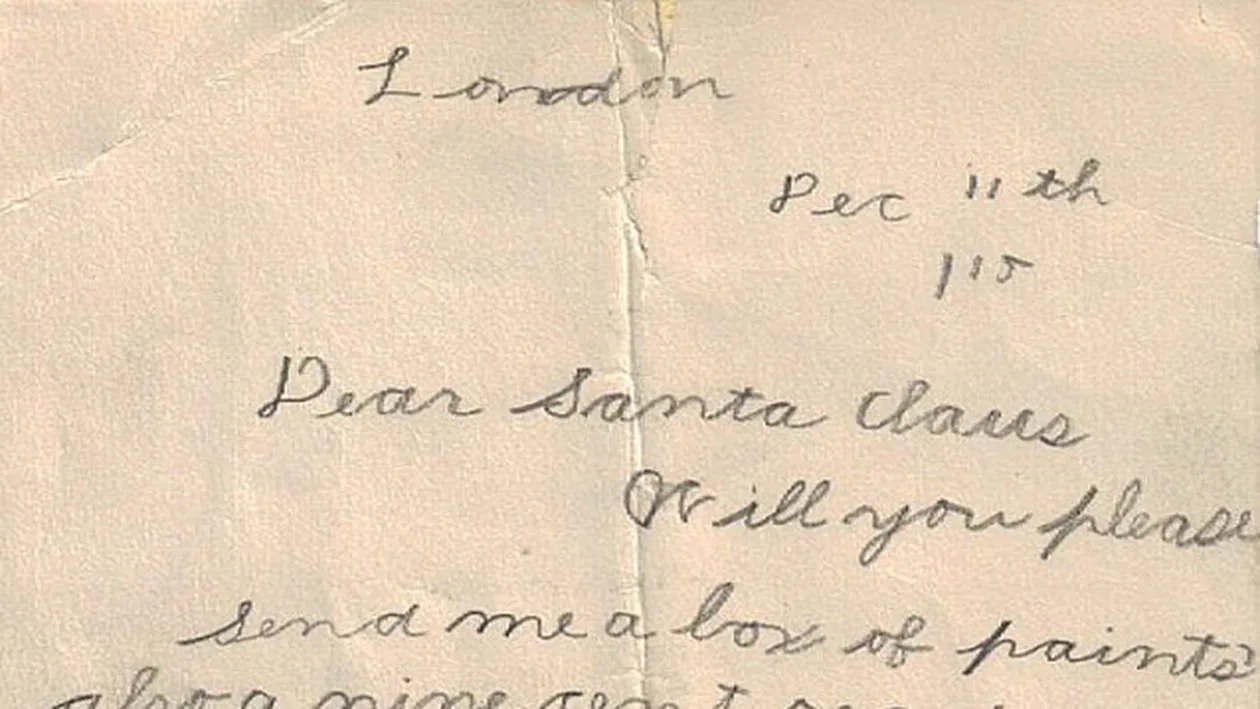 London
Dec 11th
115
Dear Santa Claus
Will you please
send me a box of paints
also a nine cent